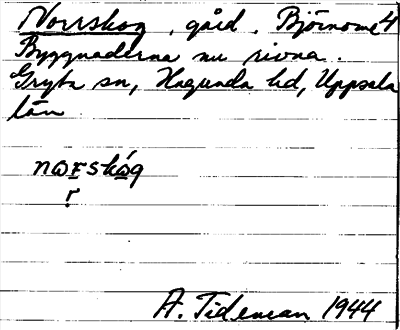 Norrskog, gård, Björnome 4
Byggnaderna nu rivna.
Gryta sn, Hagunda hd, Uppsala
län
A. Tideman 1944